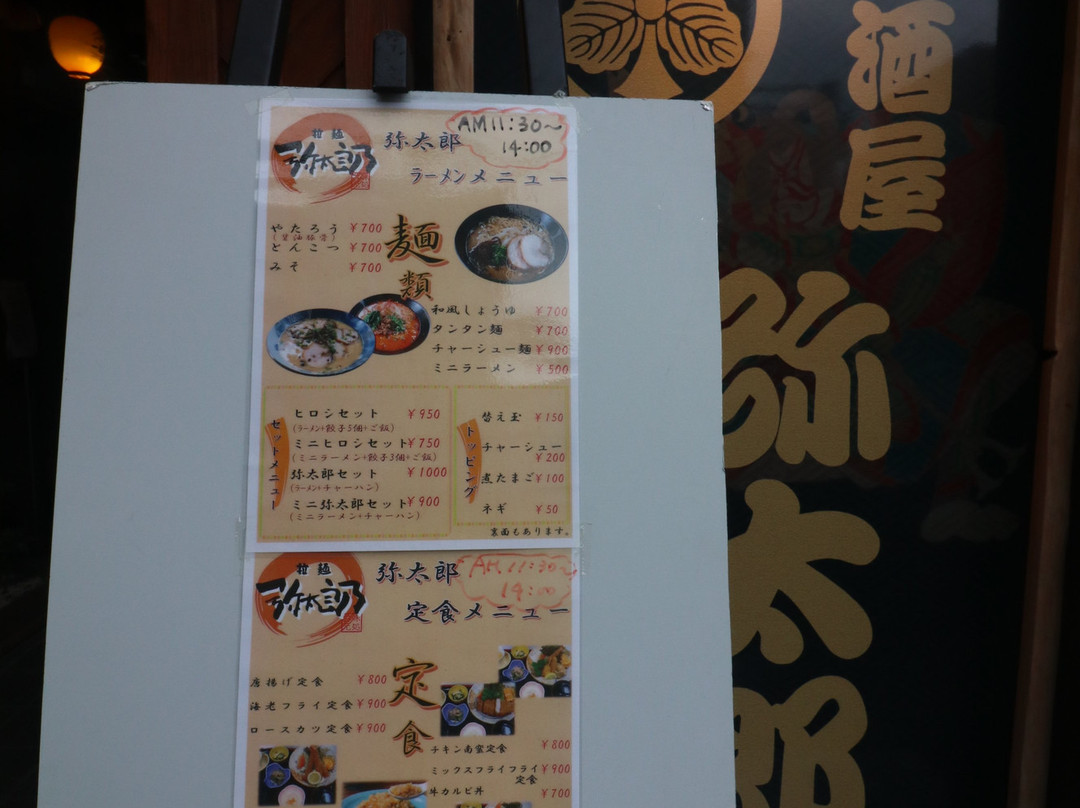 酒屋
弥太郎
拉麺
弥太郎
弥太郎
AM11:30～
14:00
ラーメンメニュー
麺類
やたろう ￥700
(醤油豚骨)
とんこつ ￥700
みそ ￥700
和風しょうゆ ￥700
タンタン麺 ￥700
チャーシュー麺 ￥900
ミニラーメン ￥500
セットメニュー
ヒロシセット ￥950
(ラーメン+餃子3個+ご飯)
ミニヒロシセット ￥750
(ミニラーメン+餃子3個+ご飯)
弥太郎セット ￥1000
(ラーメン+チャーハン)
ミニ弥太郎セット ￥900
(ミニラーメン+チャーハン)
トッピング
替え玉 ￥150
チャーシュー
￥200
煮たまご ￥100
ネギ ￥50
裏面もあります。
拉麺
弥太郎
弥太郎
AM11:30～
14:00
定食メニュー
定食
唐揚げ定食 ￥800
海老フライ定食 ￥900
ロースカツ定食 ￥900
チキン南蛮定食 ￥800
ミックスフライフライ ￥900
定食
牛カルビ丼 ￥700